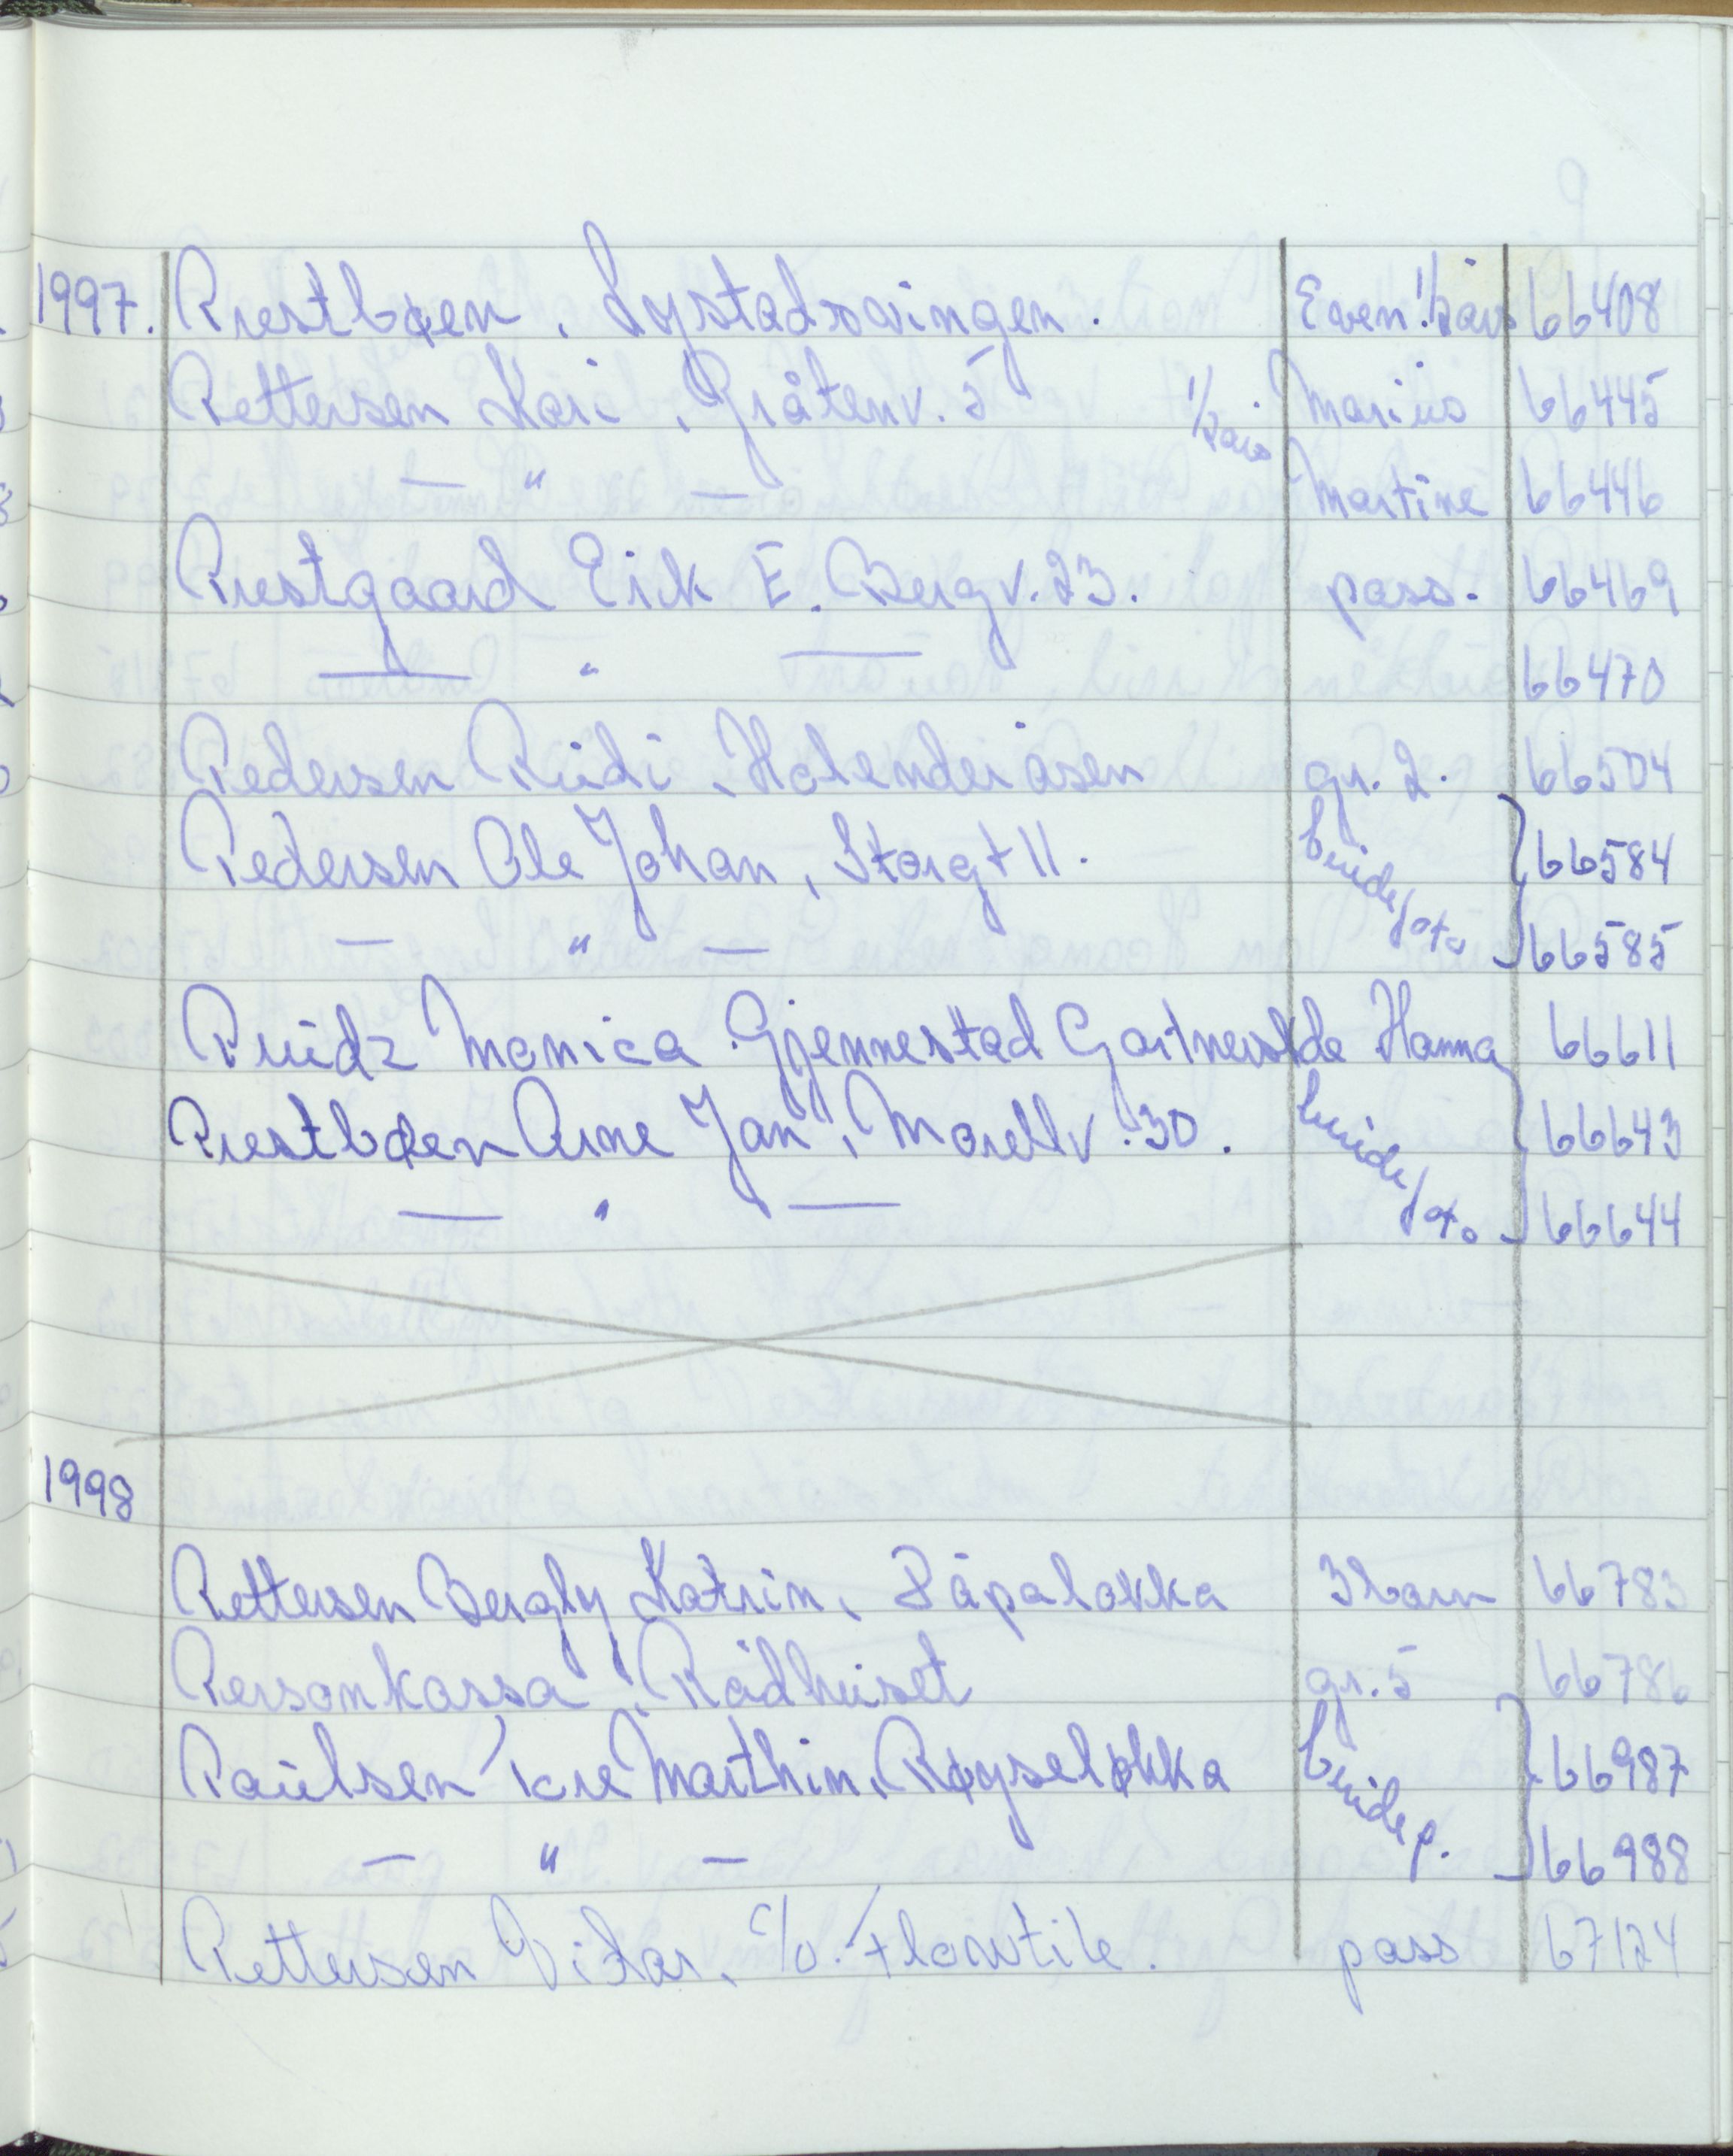 1997. Prestbøen, Lystadsvingen. Even. 1/2 års 66408
Pettersen Kari, Gråtenv. 5 1/2 års Marius 66445
— " — Martine 66446
Prestgaard Eirik E. Bergv. 23. pass. 66469
— " — 66470
Pedersen Rudi, Holenderåsen gr. 2. 66504
Pedersen Ole Johan, Storgt 11. brude/foto 66584
— " — 66585
Monica Gjennestad Gartnerskole Hanna 66611
Prestbøen Arne Jan, Morellv. 30. brude/foto 66643
— " — 66644
1998
Pettersen Bergly Katrin, Påpaløkka 3 barn 66783
Personkassa, Rådhuset gr. 5 66786
Paulsen Marthin, Røyseløkka brudep. 66987
— " — 66988
Pettersen Vidar, c/o. pass 67124